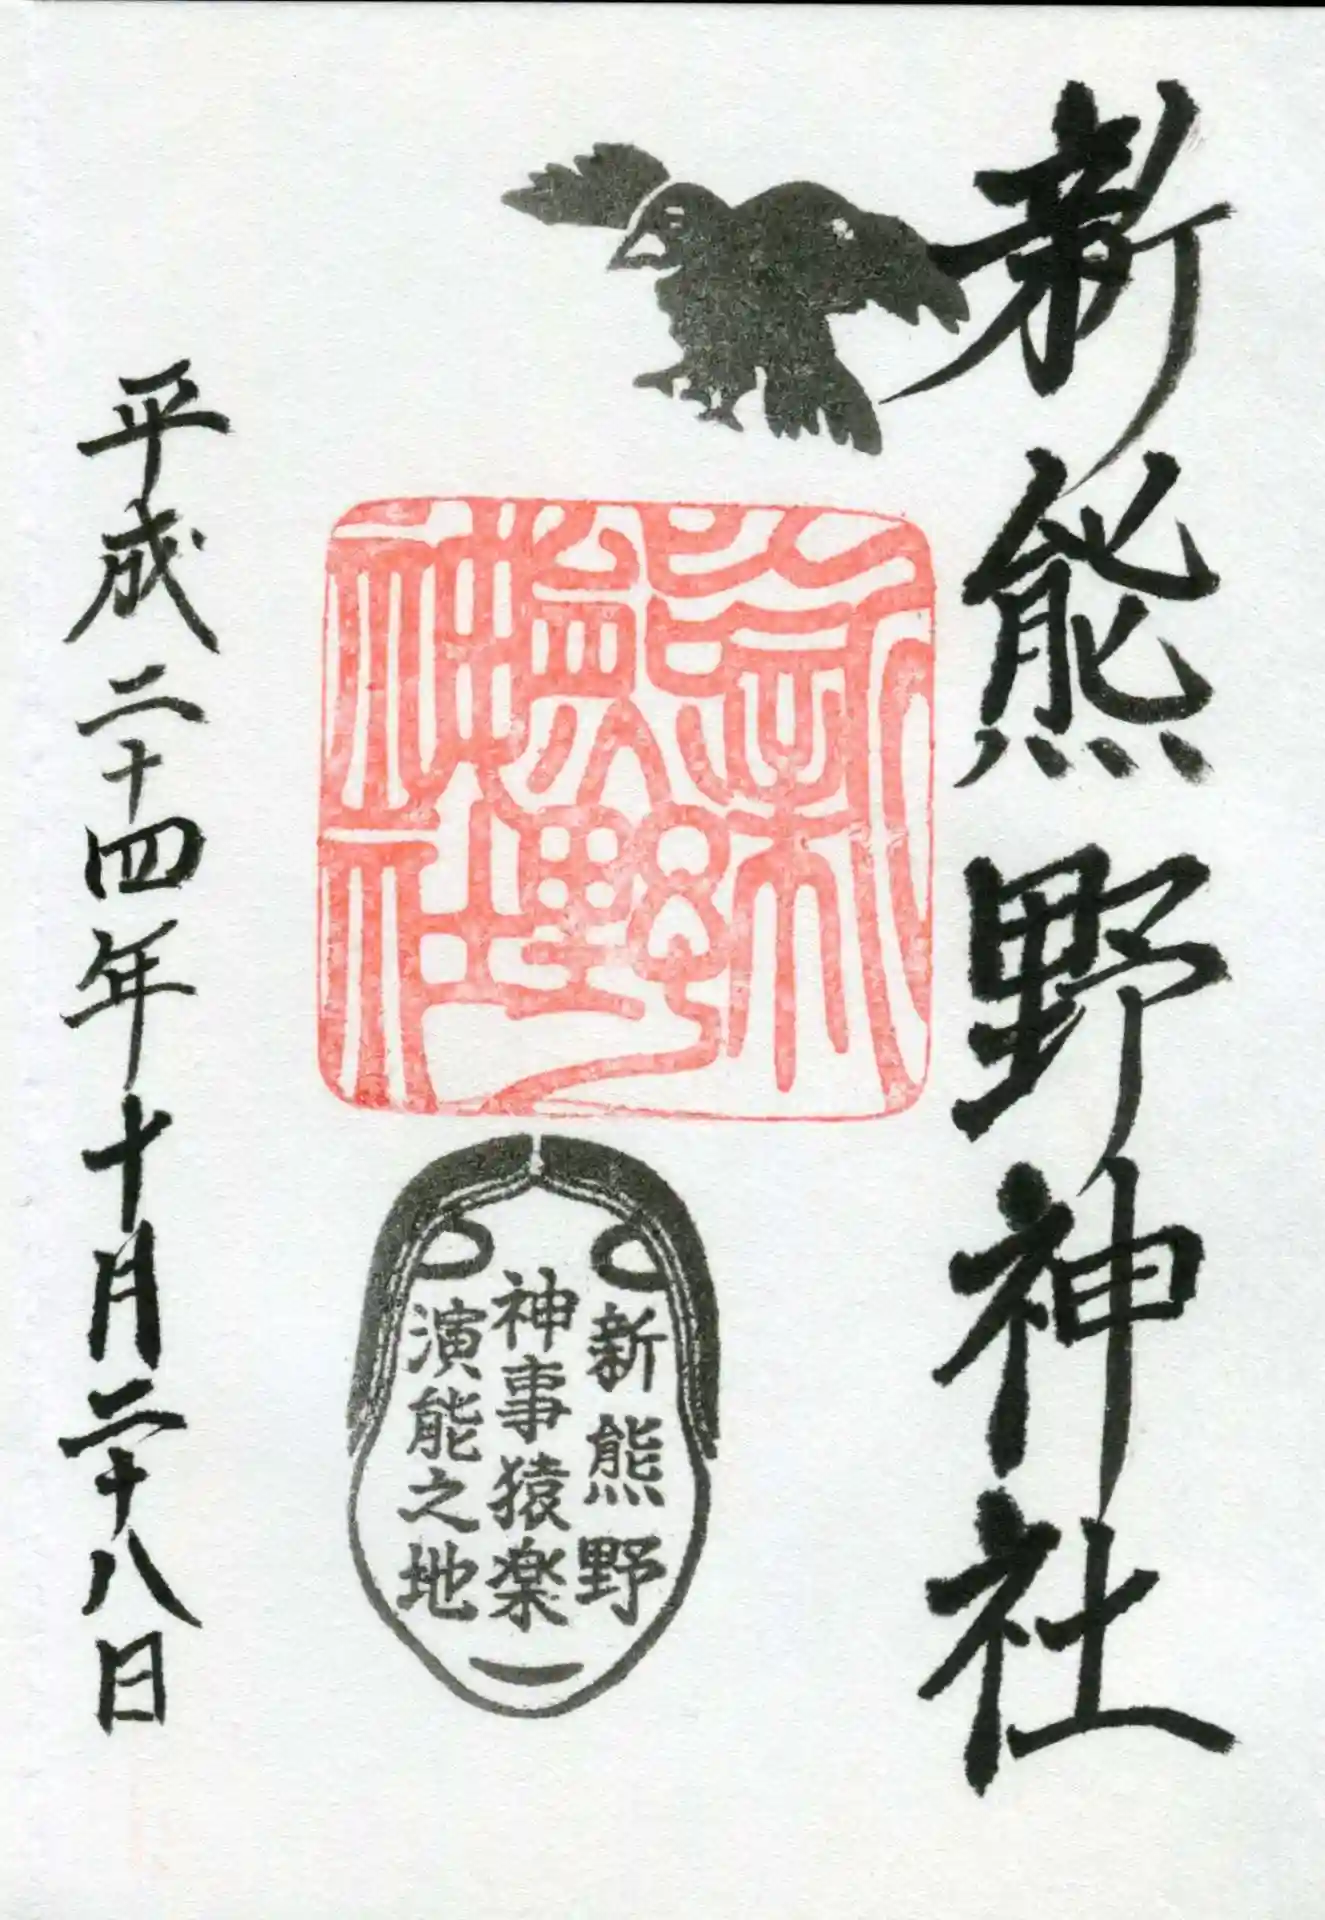 新熊野神社
新熊野
神事猿楽
演能之地
平成二十四年十月二十八日